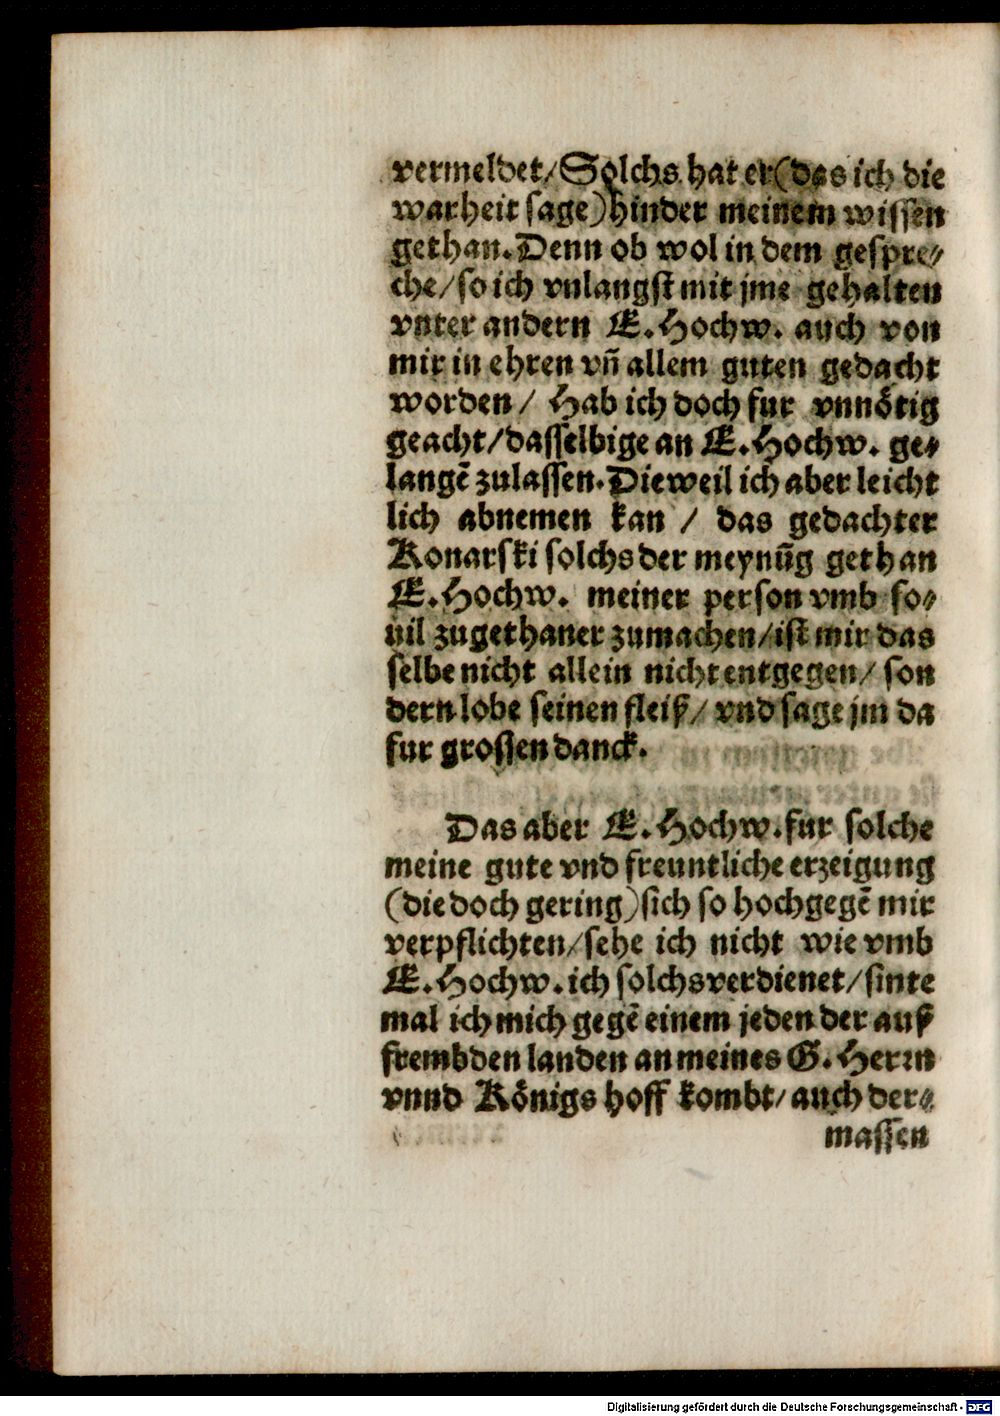 vermeldet/Solchs hat er(das ich die
warheit sage)hinder meinem wissen
gethan.Denn ob wol in dem gespre⸗
che/so ich vnlangst mit jme gehalten
vnter andern E.Hochw. auch von
mir in ehren vñ allem guten gedacht
worden/ Hab ich doch fur vnnötig
geacht/dasselbige an E.Hochw. ge⸗
langẽ zulassen.Dieweil ich aber leicht
lich abnemen kan / das gedachter
Konarski solchs der meynũg gethan
E.Hochw. meiner person vmb so⸗
uil zugethaner zumachen/ist mir das
selbe nicht allein nicht entgegen/ son
dern lobe seinen fleiß/ vnd sage jm da
fur grossen danck.
Das aber E.Hochw.fur solche
meine gute vnd freuntliche erzeigung
(die doch gering)sich so hochgegẽ mir
verpflichten/sehe ich nicht wie vmb
E.Hochw.ich solchs verdienet/sinte
mal ich mich gegẽ einem jeden der auß
frembden landen an meines G.Herrn
vnnd Königs hoff kombt/auch der⸗
massen
Digitalisierung gefördert durch die Deutsche Forschungsgemeinschaft - DFG